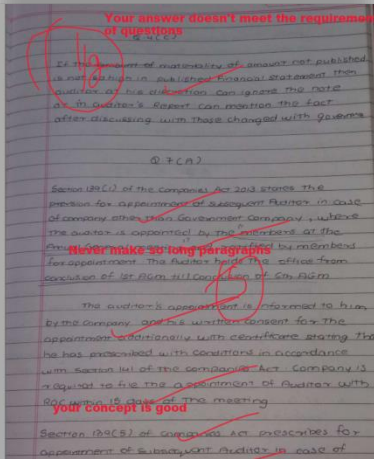 Your answer doesn't meet the requiremen
of questions
Q 4 (C)
If the amount of materiality of amount not published
is not which in published financial statement then
auditor at his discretion can ignore the note
or in auditor's Report can mention the fact
after discussing with Those changed with governce
1/6
Q 7 (A)
Section 139(1) of the companies Act 2013 states The
provision for appointment of subsequent Auditor in case
of company other than Government company, where
the auditor is appointed by the members at the
Never make so long paragraphs
by members
for appointment. The Auditor holds the office from
conclusion of 1st AGM till conclusion of 6th AGM
5
The auditor's appointment is informed to him
by the company and his written consent for the
appointment additionally with certificate stating that
he has prescribed with conditions in accordance
with section 141 of the companies Act Company is
required to file the appointment of Auditor with
ROC within 15 days of The meeting
your concept is good
Section 139(5) of companies Act prescribes for
appointment of Subsequent Auditor in case of